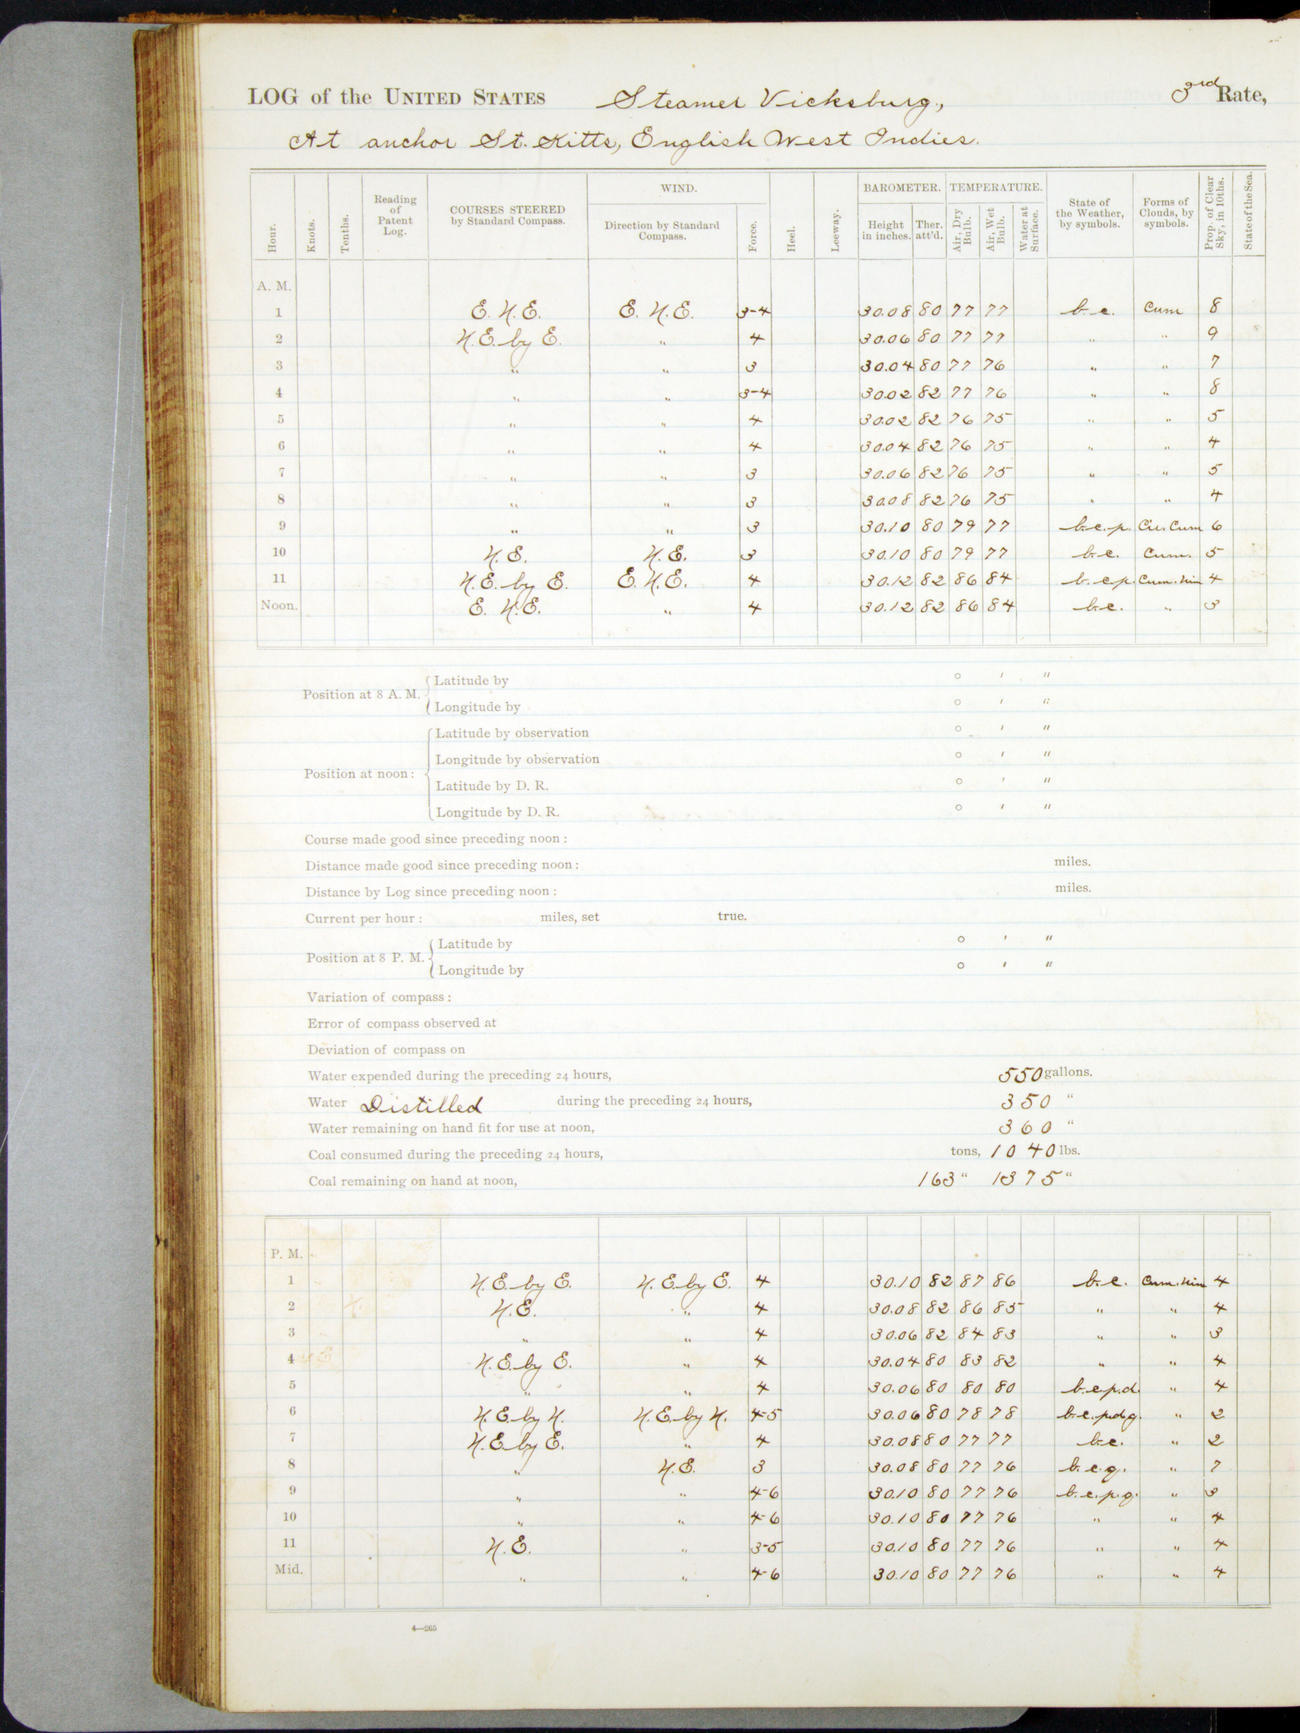 LOG of the UNITED STATES Steamer Vicksburg, 3rd Rate,
At anchor St. Kitts, English West Indies.
Hour. Knots. Tenths. Reading of Patent Log. COURSES STEERED by Standard Compass. WIND. Direction by Standard Compass. Force. Heel. Leeway. BAROMETER. Height in inches. Ther. att'd. TEMPERATURE. Air, Dry Bulb. Air, Wet Bulb. Water at Surface. State of the Weather, by symbols. Forms of Clouds, by symbols. Prop. of Clear Sky, in 10ths. State of the Sea.
A. M.
1 E. N.E. E. N.E. 3-4 30.08 80 77 77 b.c. Cum 8
2 N.E. by E. " 4 30.06 80 77 77 " " 9
3 " " 3 30.04 80 77 76 " " 7
4 " " 3-4 30.02 82 77 76 " " 8
5 " " 4 30.02 82 76 75 " " 5
6 " " 4 30.04 82 76 75 " " 4
7 " " 3 30.06 82 76 75 " " 5
8 " " 3 30.08 82 76 75 " " 4
9 " " 3 30.10 80 79 77 b.c.p. Cir. Cum 6
10 N.E. N.E. 3 30.10 80 79 77 b.c. Cum. 5
11 N.E. by E. E. N.E. 4 30.12 82 86 84 b.c.p. Cum. Nim 4
Noon. E. N.E. " 4 30.12 82 86 84 b.c. " 3
Position at 8 A. M. Latitude by ° ′ ″
Longitude by ° ′ ″
Position at noon: Latitude by observation ° ′ ″
Longitude by observation ° ′ ″
Latitude by D. R. ° ′ ″
Longitude by D. R. ° ′ ″
Course made good since preceding noon:
Distance made good since preceding noon: miles.
Distance by Log since preceding noon: miles.
Current per hour: miles, set true.
Position at 8 P. M. Latitude by ° ′ ″
Longitude by ° ′ ″
Variation of compass:
Error of compass observed at
Deviation of compass on
Water expended during the preceding 24 hours, 550 gallons.
Water Distilled during the preceding 24 hours, 350 "
Water remaining on hand fit for use at noon, 360 "
Coal consumed during the preceding 24 hours, tons, 1040 lbs.
Coal remaining on hand at noon, 163 " 1375 "
P. M.
1 N.E. by E. N.E. by E. 4 30.10 82 87 86 b.c. Cum. Nim 4
2 N.E. " 4 30.08 82 86 85 " " 4
3 " " 4 30.06 82 84 83 " " 3
4 N.E. by E. " 4 30.04 80 83 82 " " 4
5 " " 4 30.06 80 80 80 b.c.p.d. " 4
6 N.E. by N. N.E. by N. 4-5 30.06 80 78 78 b.c.p.d.g. " 2
7 N.E. by E. " 4 30.08 80 77 77 b.c. " 2
8 " N.E. 3 30.08 80 77 76 b.c.g. " 7
9 " " 4-6 30.10 80 77 76 b.c.p.g. " 3
10 " " 4-6 30.10 80 77 76 " " 4
11 N.E. " 3-5 30.10 80 77 76 " " 4
Mid. " " 4-6 30.10 80 77 76 " " 4
4—265